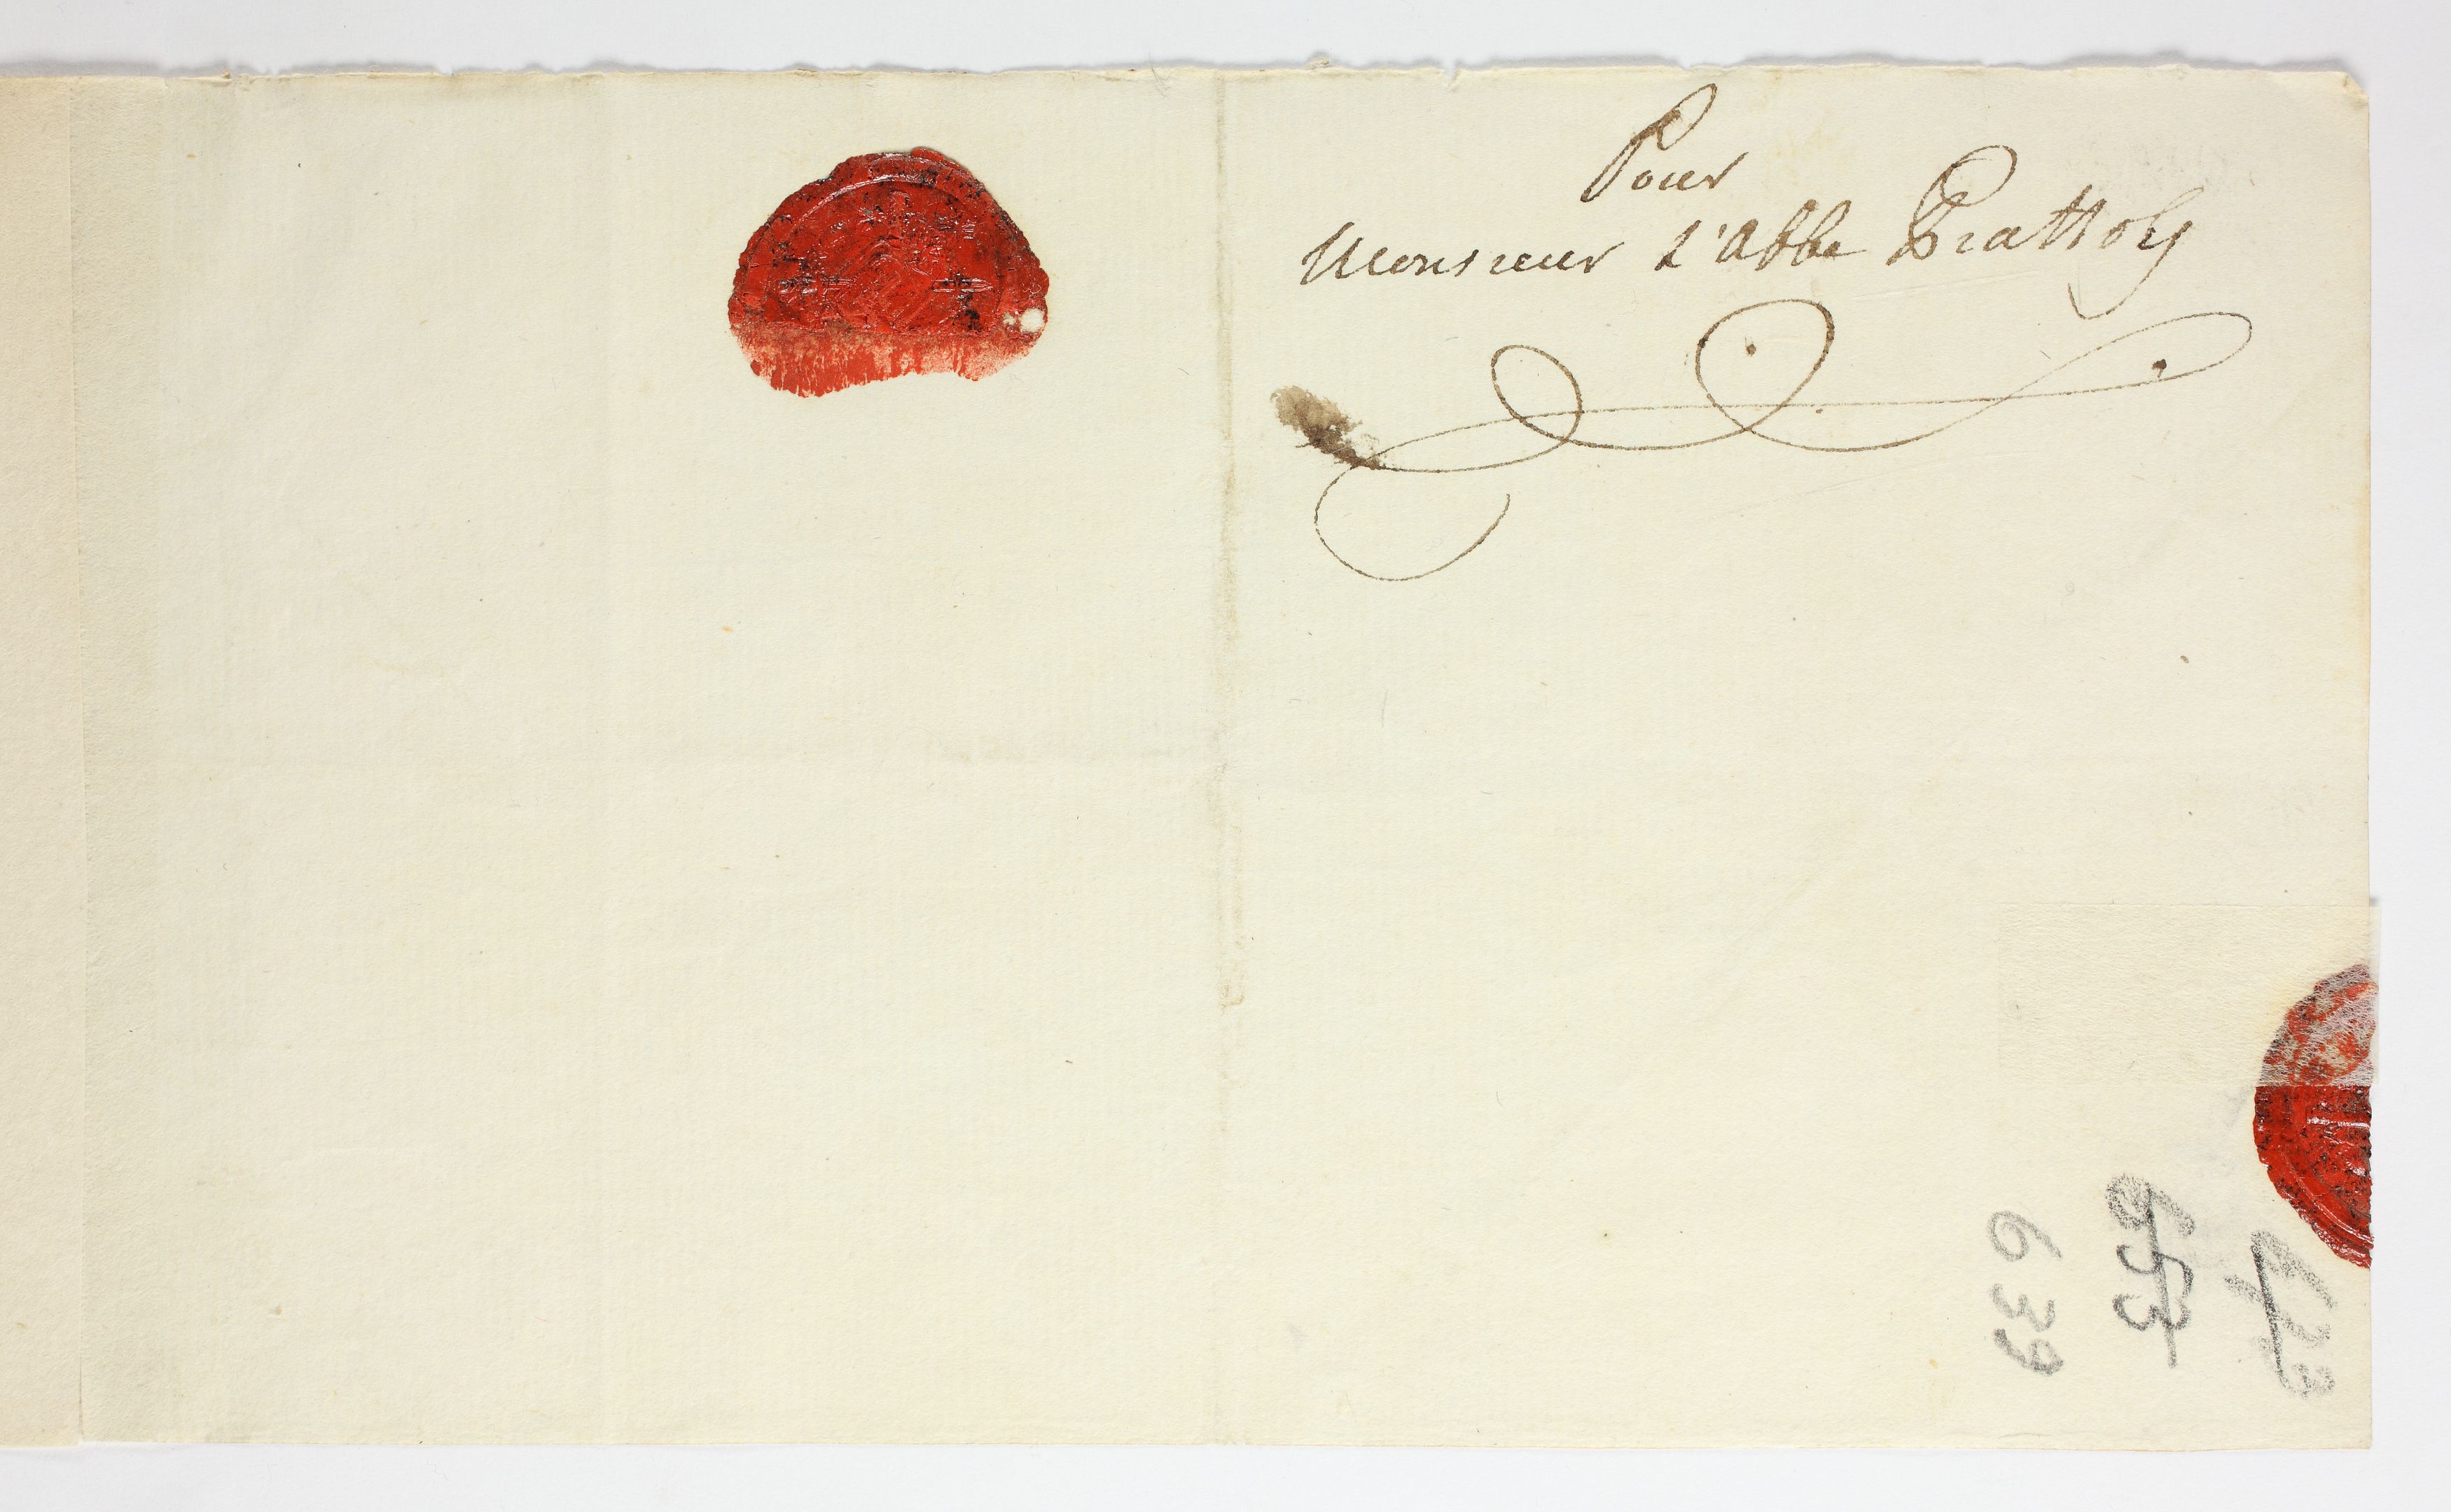 Pour
Monsieur L'Abbe Piattoly
639
653